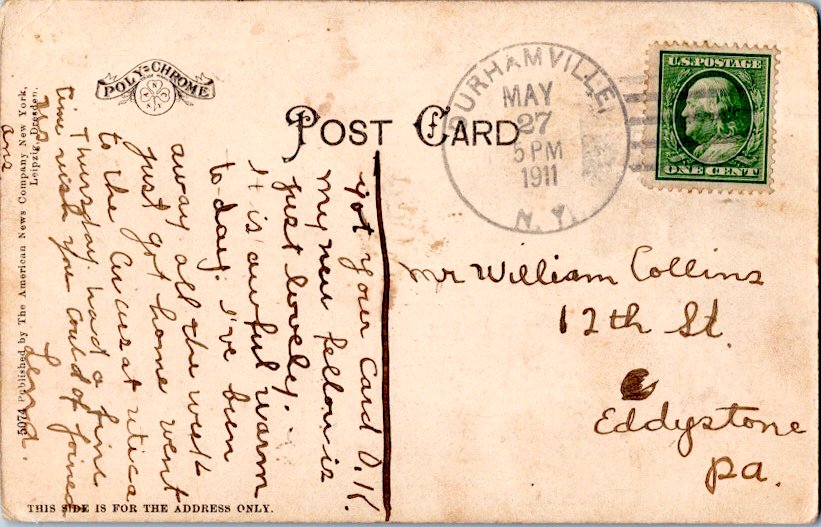 POLY-CHROME
POST CARD
DURHAMVILLE,
MAY
27
5 PM
1911
N.Y.
U.S. POSTAGE
ONE CENT
Mr William Collins
12th St.
Eddystone
Pa.
got your card O.K.
my new fellow is
just lovely.
It is awful warm
to day. I've been
away all the week
just got home went
to the Circus at Utica
Thursday. had a fine
time wish you could of joined
us
Lena.
5074 Published by The American News Company New York,
Leipzig, Dresden.
THIS SIDE IS FOR THE ADDRESS ONLY.